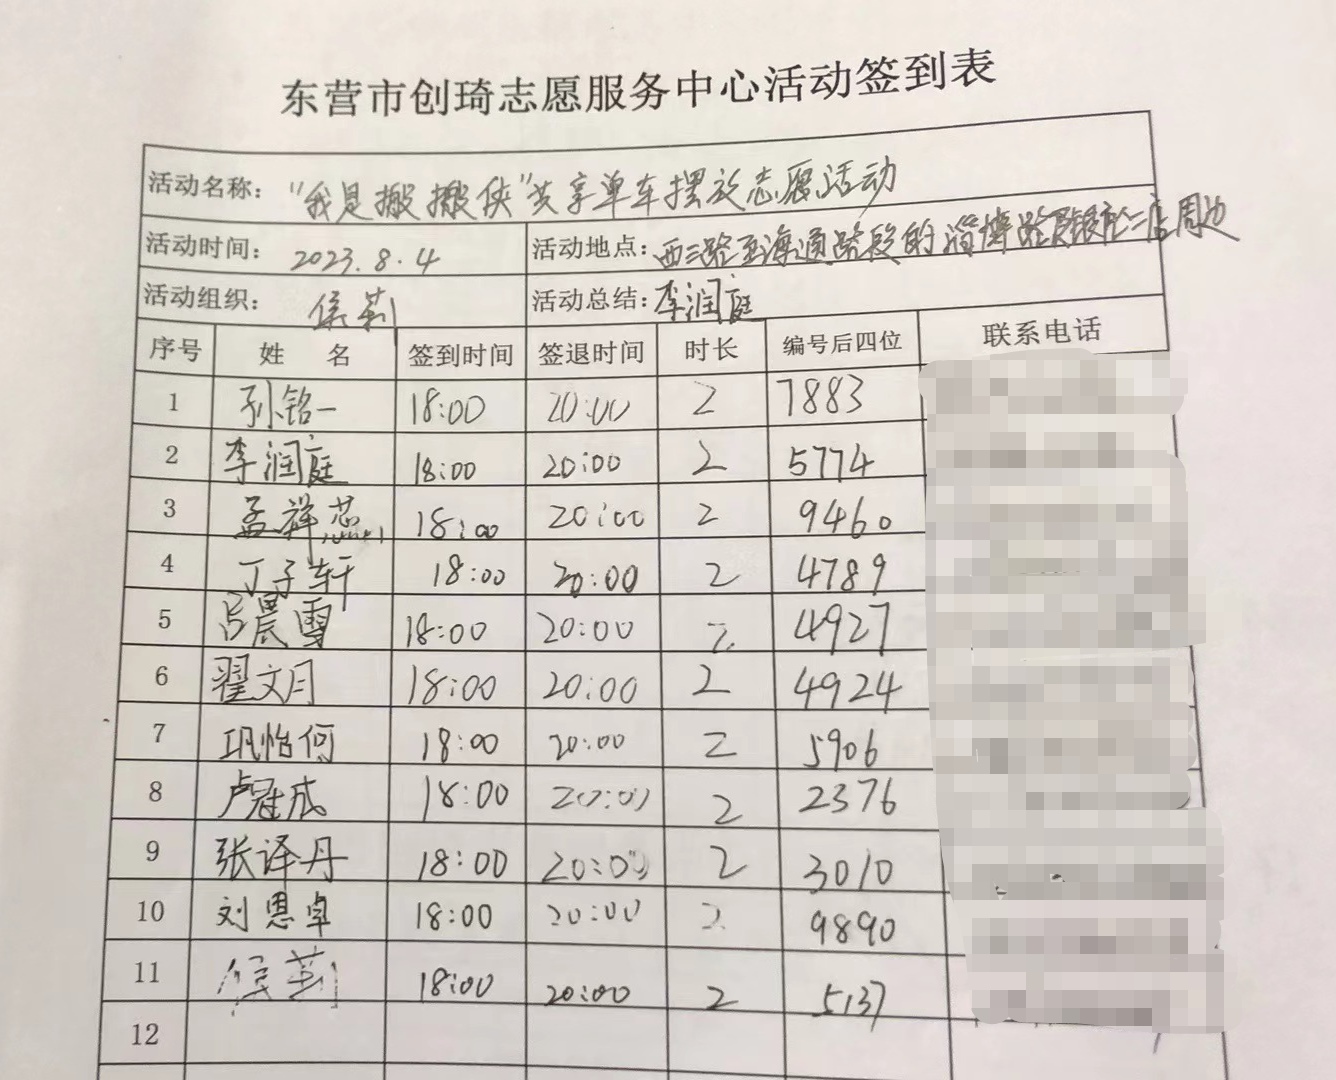 东营市创琦志愿服务中心活动签到表
活动名称：“我是搬搬侠”共享单车摆放志愿活动
活动时间：2023.8.4 活动地点：西三路至海通路段的淄博路 二店周边
活动组织：侯莉 活动总结：李润庭
序号 姓名 签到时间 签退时间 时长 编号后四位 联系电话
1 孙铭一 18:00 20:00 2 7883
2 李润庭 18:00 20:00 2 5774
3 孟祥蕊 18:00 20:00 2 9460
4 丁子轩 18:00 20:00 2 4789
5 吕晨雪 18:00 20:00 2 4927
6 翟文月 18:00 20:00 2 4924
7 巩怡何 18:00 20:00 2 5906
8 卢冠成 18:00 20:00 2 2376
9 张译丹 18:00 20:00 2 3010
10 刘恩卓 18:00 20:00 2 9890
11 侯莉 18:00 20:00 2 5137
12